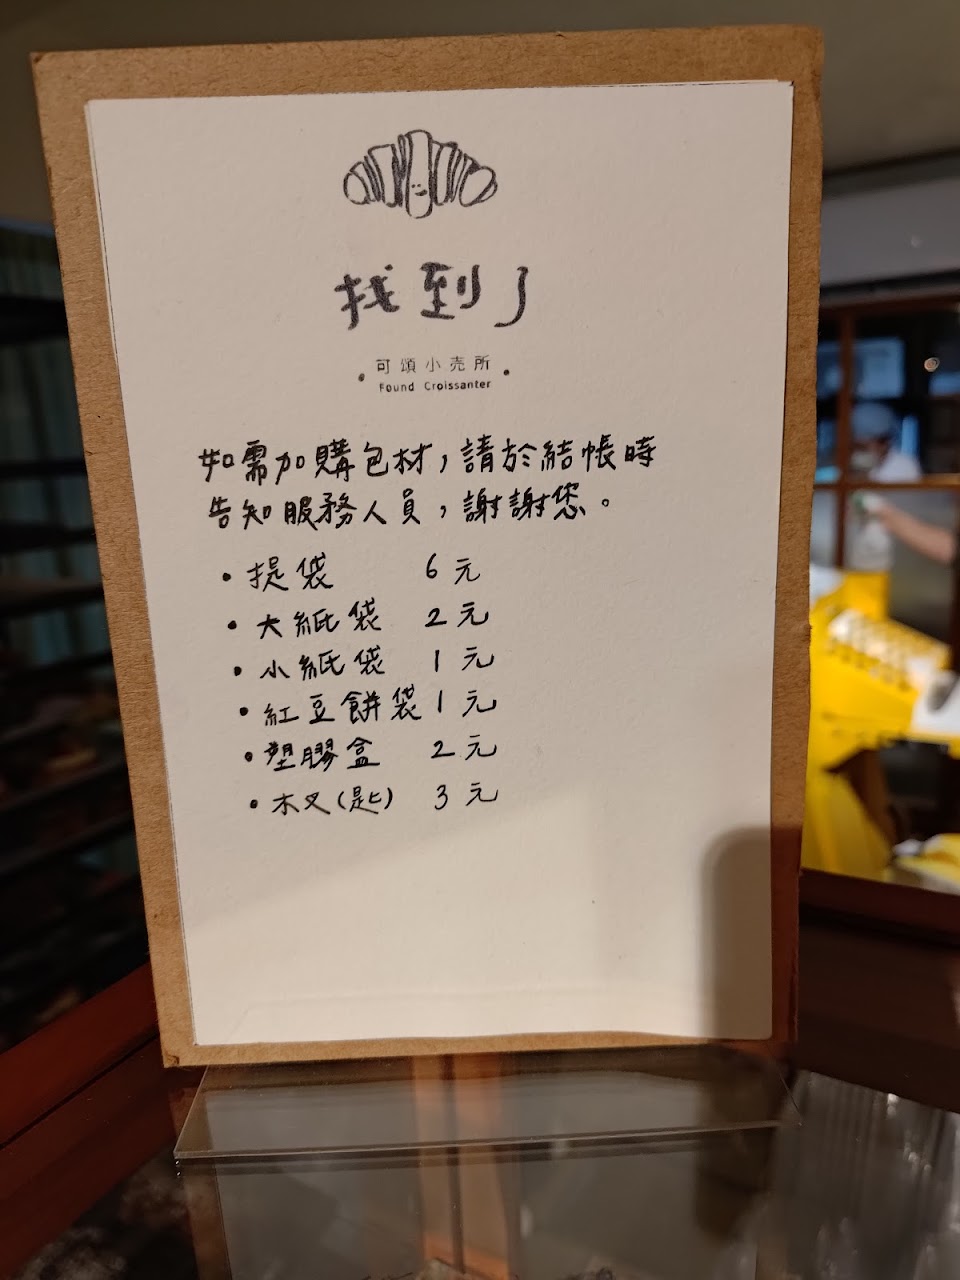 找到了
可頌小売所
Found Croissanter
如需加購包材，請於結帳時
告知服務人員，謝謝您。
• 提袋 6元
• 大紙袋 2元
• 小紙袋 1元
• 紅豆餅袋 1元
• 塑膠盒 2元
• 木叉(匙) 3元